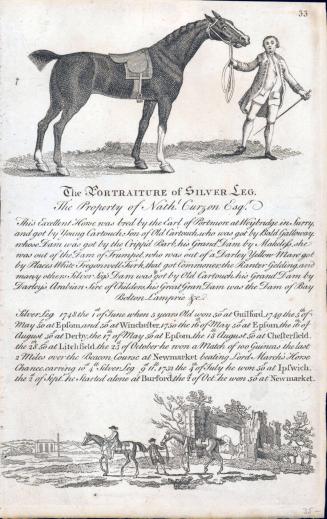 33
The PORTRAITURE of SILVER LEG.
The Property of Nath. Curzon Esq.r
This Excellent Horse was bred by the Earl of Portmore at Weybridge in Surry,
and got by Young Cartouch, Son of Old Cartouch, who was got by Bald Galloway
whose Dam was got by the Cripp'd Barb, his Grand Dam by Makeless, she
was out of the Dam of Trumpet, who was out of a Darley Yellow Mare got
by Places White Tregonwell Turk, that got Commoner, the Hautboy Gelding, and
many others. Silver Legs Dam was got by Old Cartouch, his Grand Dam by
Darley's Arabian Sire of Childers, his Great Gran Dam was the Dam of Bay
Bolton, Lamprie &c.
Silver Leg 1748 the 1st of June when 5 years Old won 50 at Guilford, 1749 the 5th of
May 50 at Epsom, and 50 at Winchester, 1750 the 16 of May 50 at Epsom, the 16th of
August 50 at Derby, the 17th of May 50 at Epsom, the 15 August 50 at Chesterfield,
the 28. 50 at Litchfield, the 25 of October he won a Match of 100 Guineas the last
2 Miles over the Beacon Course at Newmarket beating Lord March's Horse
Chance, carrying 10st 4lb Silver Leg 9st 11lb, 1751 the 4th of July he won 50 at Ipswich,
the 2d of Sept. he Started alone at Burford, the 2d of Oct. he won 50 at Newmarket.
35.-